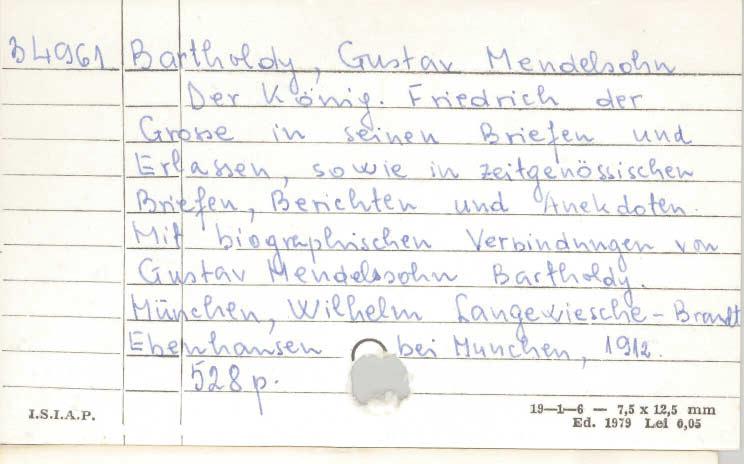 34961 Bartholdy, Gustav Mendelsohn
Der König. Friedrich der
Grosse in seinen Briefen und
Erlassen, sowie in zeitgenössischen
Briefen, Berichten und Anekdoten.
Mit biographischen Verbindungen von
Gustav Mendelssohn Bartholdy.
München, Wilhelm Langewiesche-Brandt
Ebenhausen bei Munchen, 1912.
528 p.
I.S.I.A.P.
19—1—6 — 7,5 x 12,5 mm
Ed. 1979 Lei 0,05